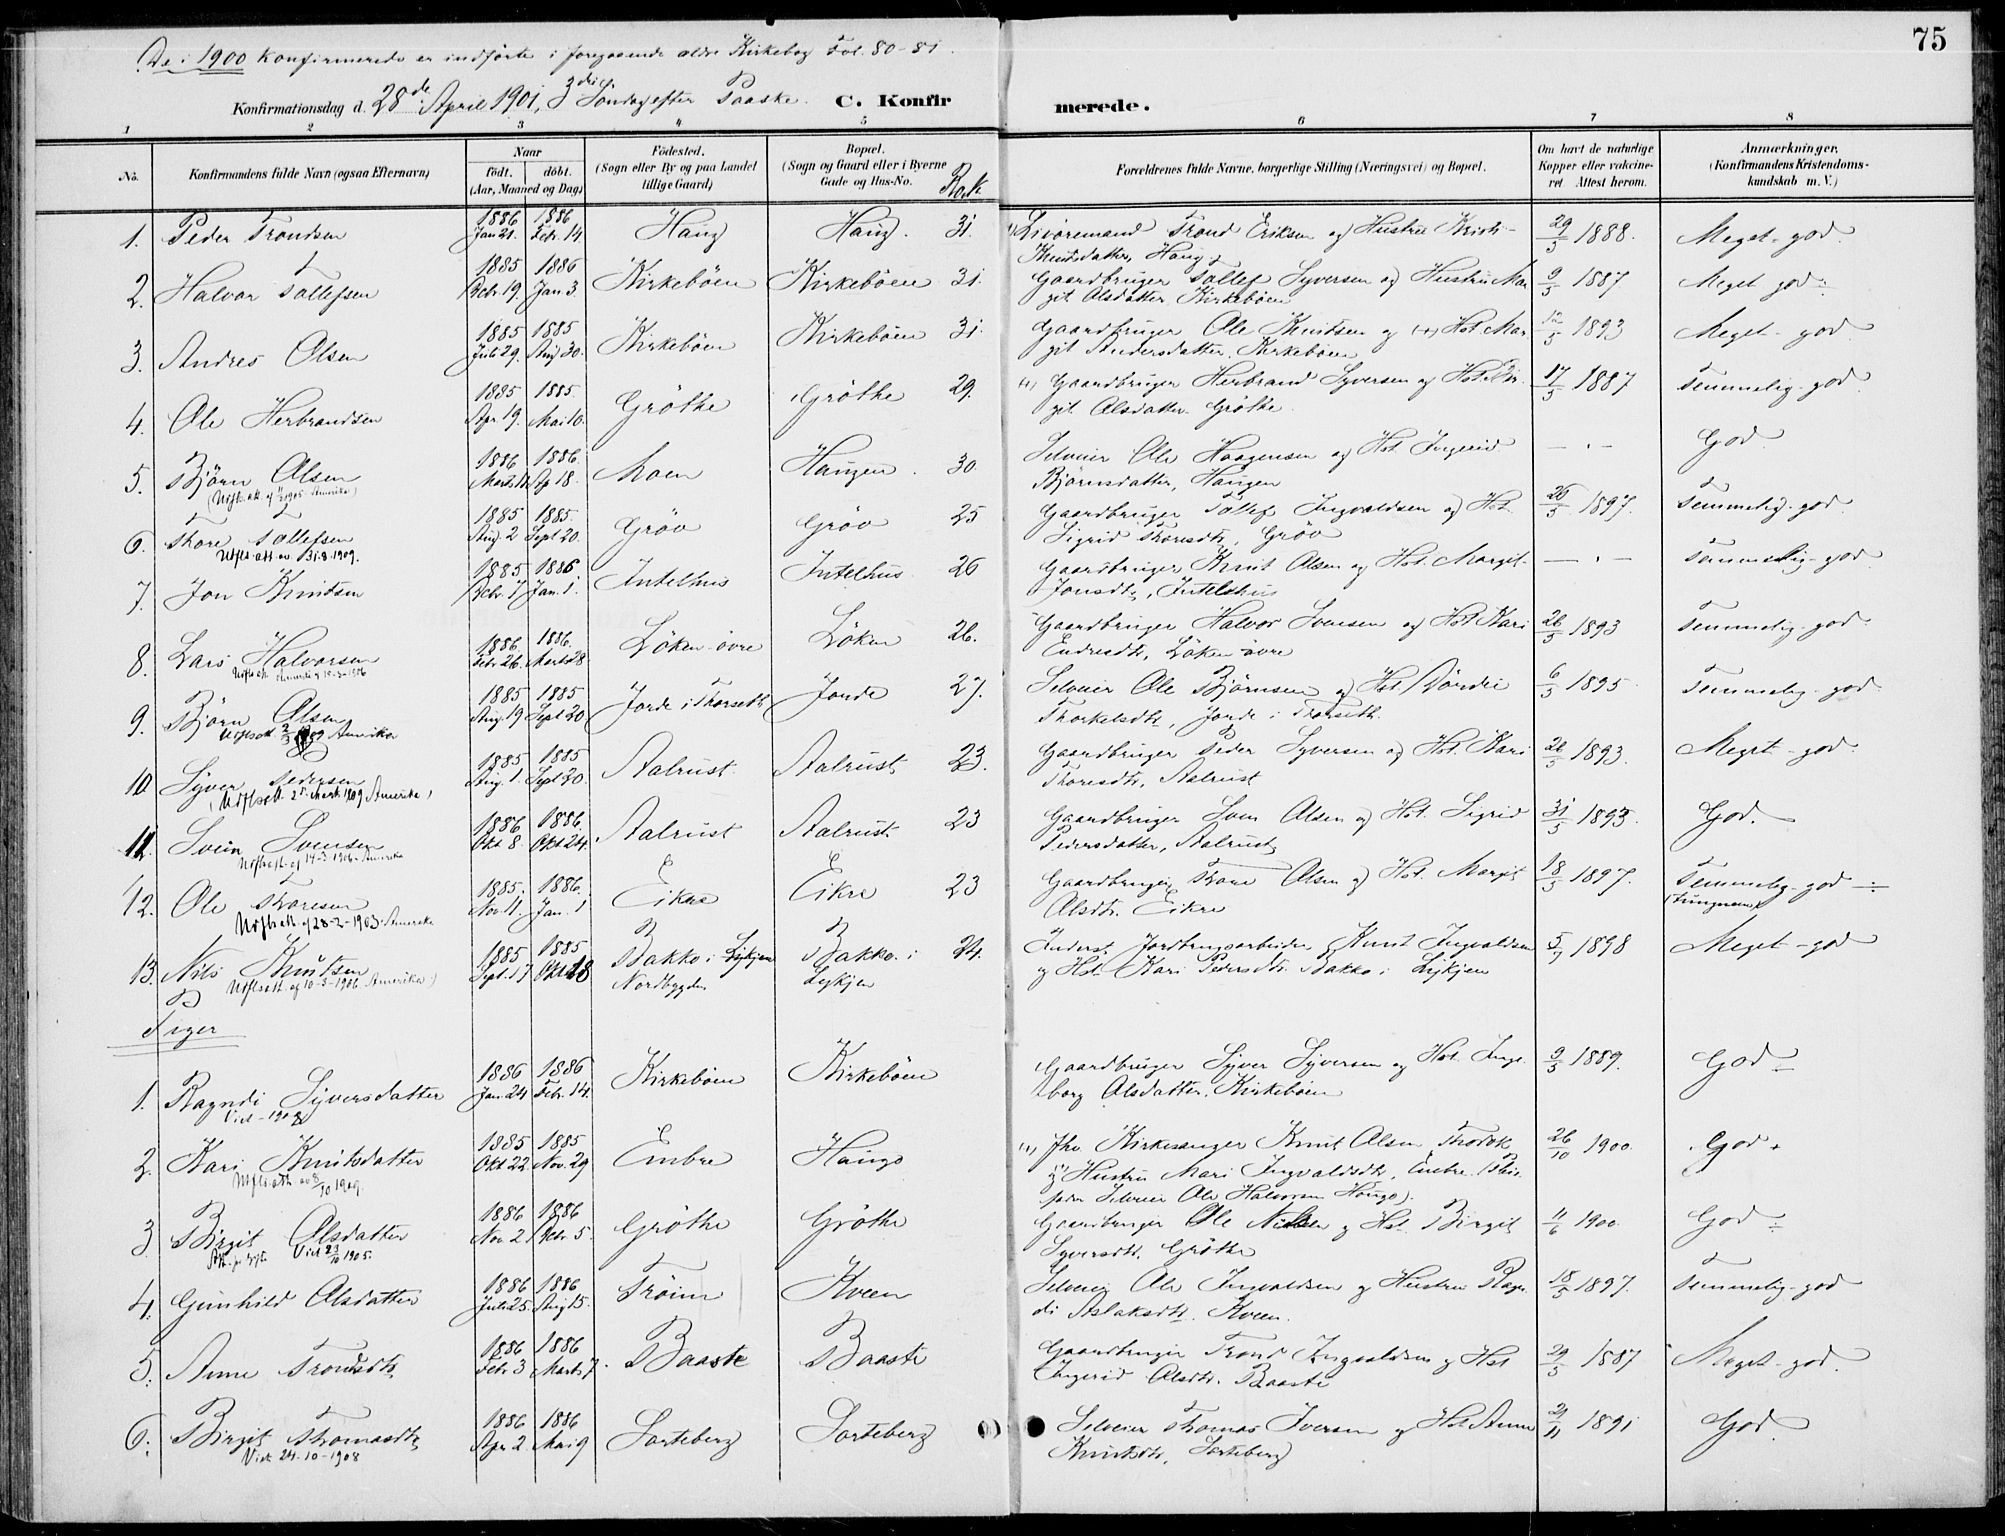 75
De i 1900 Konfirmerede er indførte i foregaaende ældre Kirkebog Fol. 80-81.
Konfirmationsdag d. 28de April 1901, 3die Søndag efter Paaske. C. Konfirmerede.
1 2 3 4 5 6 7 8
No. Konfirmandens fulde Navn (ogsaa Efternavn) Naar født. døbt. (Aar, Maaned og Dag) Fødested. (Sogn eller By og paa Landet tillige Gaard) Bopæl. (Sogn og Gaard eller i Byerne Gade og Hus-No. Forældrenes fulde Navne, borgerlige Stilling (Næringsvei) og Bopæl. Om havt de naturlige Kopper eller vaccineret. Attest herom. Anmærkninger. (Konfirmandens Kristendomskundskab m. V.)
1. Peder Trondsen 1886 Jan 21. 1886 Febr. 14 Haug Haug. 31. Livøremand Trond Eriksen og Hustru Kristi Knudsdatter, Haug 29/5 1888. Meget-god.
2. Halvor Tollefsen 1885 Decbr. 19. 1886 Jan. 3. Kirkebøen Kirkebøen 31. Gaardbruger Tollef Syversen og Hustru Margit Olsdatter Kirkebøen 9/5 1887 Meget god
3. Andres Olsen 1885 Juli 29. 1885 Aug 30. Kirkebøen Kirkebøen 31. Gaardbruger Ole Knudsen og (+) Hst. Margit Andersdatter, Kirkebøen 12/5 1893 Meget-god
4. Ole Herbrandsen 1885 Apr. 19. 1885. Mai 10. Grøthe Grøthe 29. (+) Gaardbruger Herbrand Syversen og Hst. Birgit Olsdatter. Grøthe. 17/5 1887 Temmelig-god.
5. Bjørn Olsen 1886 1886. Ap 18. Moen Haugen. 30. Selveier Ole Haagensen og Hst. Ingerid Bjørnsdatter, Haugen — . — God
6. Thore Tollefsen 1885 Aug. 2 1885. Sept 20. Grøv Grøv 25 Gaardbruger Tollef Ingvaldsen og Hst. Sigrid Thoresdtr, Grøv 26/5 1897. Temmelig-god.
Udfls. att. av 31.8.1909.
7. Jon Knudsen 1885 Decbr. 7 1886 Jan. 1. Intelhus Intelhus. 26 Gaardbruger Knut Olsen og Hst. Margit Jonsdtr, Intelshus — . — Temmelig-god
8. Lars Halvorsen 1886 Febr. 26. 1886. Marts 28. Løken-øvre Løken 26. Gaardbruger Halvor Svensen og Hst Kari Endresdtr, Løken øvre 26/5 1893 Temmelig-god.
9. Bjørn Olsen 1885 Aug. 19 1885 Sept 20 Jorde i Thorseth Jorde 27. Selveier Ole Bjørnsen og Hst. Dordei Thorkelsdtr, Jorde i Thorseth. 6/5 1895 Temmelig-god.
10. Syver Pedersen 1885 Aug. 1. 1885 Sept 20. Aalrust Aalrust 23. Gaardbruger Peder Syversen og Hst. Kari Thoresdtr, Aalrust 26/5 1893. Meget-god.
(Udflsatt. 2 Marts 1909 Amerika)
11. Svein Svensen 1886 Okt 8. 1886. Okt 24. Aalrust Aalrust. 23 Gaardbruger Sven Olsen og Hst. Sigrid Pedersdatter, Aalrust 31/5 1893. God.
12. Ole Thoresen 1885. Nov. 11. 1886. Jan. 1 Eikre Eikre 23 Gaardbruger Thore Olsen og Hst. Margit Olsdtr. Eikre 18/5 1897. Temmelig-god (Tungnem)
Udflsatt. af 28-2-1903. Amerika
13. Nils Knutsen 1885 Sept. 17 1885 Okt 18 Bakko i Lykkjen Nordbygden Bakko i Lykkjen 24. Inderst Jordbrugsarbeider Knut Ingvaldsen og Hst. Kari Pedersdtr. Bakko i Lykkjen 5/7 1898 Meget-god
Udflsatt. af 10-3-1906 Amerika.)
Piger
1. Ragndi Syversdatter 1886 Jan. 24 1886 Febr. 14. Kirkebøen Kirkebøen Gaardbruger Syver Syversen og Hst. Ingeborg Olsdatter. Kirkebøen 9/5 1889. God
Viet-1908
2. Kari Knutsdatter 1885 Okt 22 1885 Nov. 29 Embre Haugo (+) Fhv. Kirkesanger Knut Olsen og Hustru Mari Ingvaldsdtr, Embre. Selveier Ole Halvorsen Haugo). 26/10 1900. God
Udflsatt. av 8/10 1909.
3 Birgit Olsdatter 1886 Nov. 2 1886 Decbr. 5. Grøthe Grøthe Gaardbruger Ole Nilsen og Hst. Birgit Syversdtr. Grøthe 11/6 1900. God
Viet 23/10 1905.
4. Gunhild Olsdatter 1886 Juli 25. 1886 Aug 15. Trøim Kveen Selveier Ole Ingvaldsen og Hustru Ragndi Aslaksdtr. Kveen. 18/5 1897. Temmelig-god
5. Anne Trondsdtr 1886 Febr. 3 1886 Marts 7. Baaste Baaste Gaardbruger Trond Ingvaldsen og Hst Ingerid Olsdtr. Baaste 29/5 1887 Meget-god.
6. Birgit Thomasdtr 1886 Apr. 2 1886 Mai 9 Sorteberg Sorteberg Selveier Thomas Iversen og Hst. Anne Knutsdtr, Sorteberg 29/11 1891 God.
Viet 24-10-1908